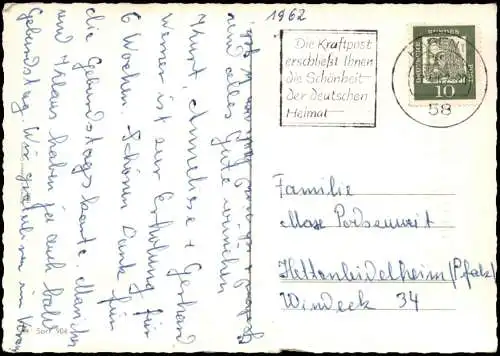 1962
Die Kraftpost
erschließt Ihnen
die Schönheit
der deutschen
Heimat
58
DEUTSCHE BUNDESPOST
10
und alles Gute wünschen
Kurt, Anneliese + Gerhard
Werner ist zur Erholung für
6 Wochen. Schönen Dank für
die Geburtstagskarte.
und Klaus haben ja auch bald
Geburtstag. Wir im
Familie
Max
Hettenleidelheim/Pfalz
Windeck 34